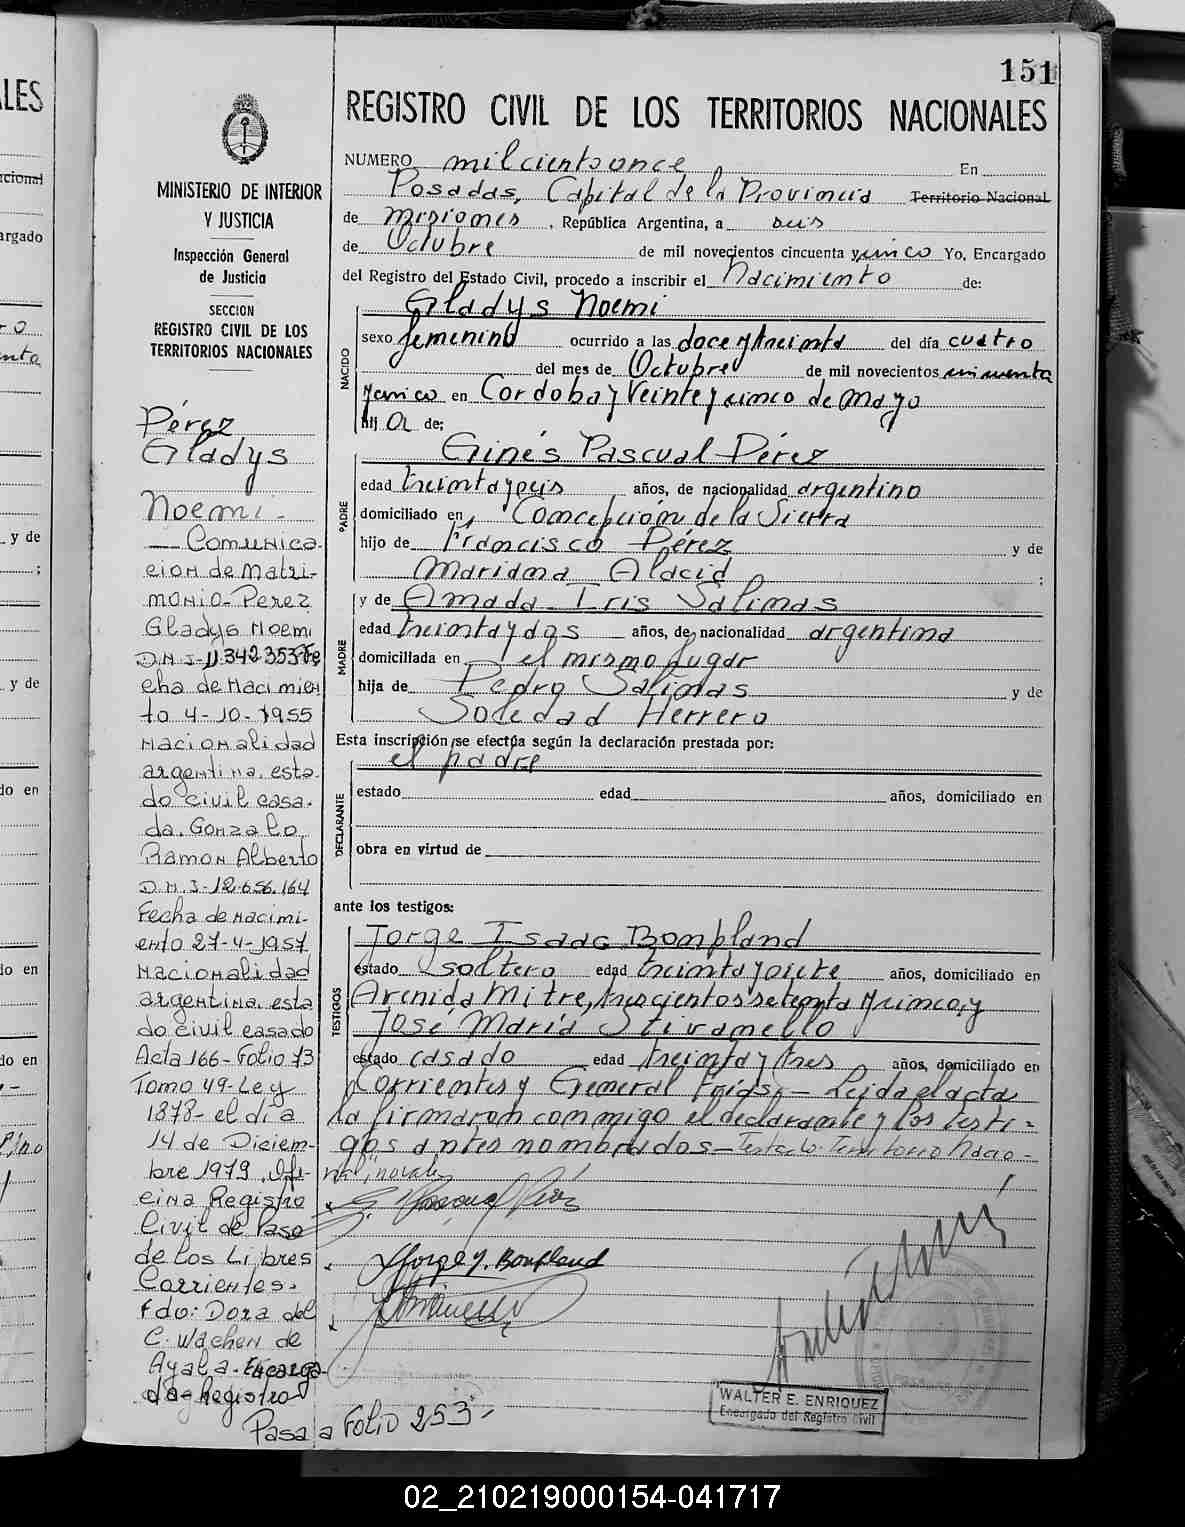 151
REGISTRO CIVIL DE LOS TERRITORIOS NACIONALES
NUMERO milcientoonce En
Posadas, Capital de la Provincia Territorio Nacional
de misiones, República Argentina, a seis
de Octubre de mil novecientos cincuenta ycinco Yo, Encargado
del Registro del Estado Civil, procedo a inscribir el Nacimiento de:
NACIDO
Gladys Noemi
sexo femenino ocurrido a las doce y treinta del día cuatro
del mes de Octubre de mil novecientos cincuenta
ycinco en Cordoba y Veinte y cinco de mayo
hij a de:
PADRE
Ginés Pascual Pérez
edad treinta y seis años, de nacionalidad argentino
domiciliado en Concepción de la Sierra
hijo de Francisco Pérez y de
Mariana Alacid ;
MADRE
y de Amada Iris Salinas
edad treinta y dos años, de nacionalidad argentina
domiciliada en el mismo lugar
hija de Pedro Salinas y de
Soledad Herrero
Esta inscripción se efectúa según la declaración prestada por:
el padre
DECLARANTE
estado edad años, domiciliado en
obra en virtud de
ante los testigos:
TESTIGOS
Jorge Isaac Bonpland
estado soltero edad treinta y siete años, domiciliado en
Avenida Mitre, trescientos setenta y cinco, y
José María Stivanello
estado casado edad treinta y tres años, domiciliado en
Corrientes y General Frías.— Leida el acta
la firmaron conmigo el declarante y los testi=
gos antes nombrados— Testado: Territorio Nacio-
nal", novale
Jorge I. Bonpland
WALTER E. ENRIQUEZ
Encargado del Registro Civil
MINISTERIO DE INTERIOR
Y JUSTICIA
Inspección General
de Justicia
SECCION
REGISTRO CIVIL DE LOS
TERRITORIOS NACIONALES
Pérez
Gladys
Noemi.
— Comunica-
cion de Matri-
monio- Perez
Gladys Noemi
D.N.I- 11.342.353 Fe
cha de Nacimien
to 4-10-1955
Nacionalidad
argentina, esta-
do civil casa-
da. Gonzalo
Ramon Alberto
D.N.I-12.656.164
Fecha de nacimi-
ento 27-4-1957
Nacionalidad
argentina, esta
do civil casado
Acta 166- Folio 73
Tomo 49- Ley
1878- el día
14 de Diciem-
bre 1979. Ofi-
cina Registro
Civil de Paso
de los Libres
Corrientes.
Fdo: Dora del
C. Wachen de
Ayala- Encarga-
da- Registro
Pasa a Folio 253-
LES
cional
argado
y de
;
y de
do en
do en
do en
02_210219000154-041717